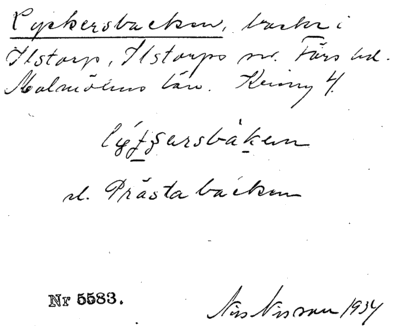 Lyckersbacken, backe i
Ilstorp, Ilstorps sn. Färs hd.
Malmöhus län. 4.
vl. Prästabacken
Nr 5583.
Nils Nilsson 1934